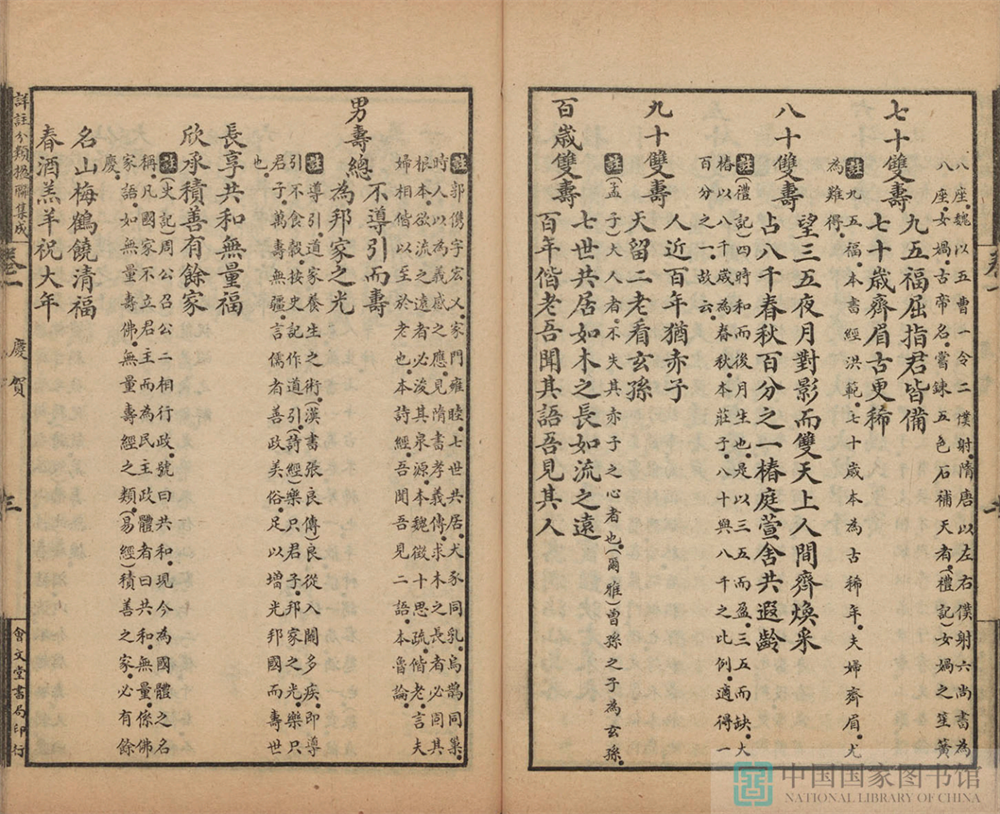 八座魏以五曹一令二僕射隋唐以左右僕射六尚書為
八座女媧古帝名嘗鍊五色石補天者(禮記)女媧之笙簧
七十雙壽
九五福屈指君皆備
七十歲齊眉古更稀
註九五福本書經洪範七十歲本為古稀年夫婦齊眉尤
為難得
八十雙壽
望三五夜月對影而雙天上人間齊煥采
占八千春秋百分之一椿庭萱舍共遐齡
註(禮記)四時和而後月生也是以三五而盈三五而缺大
椿以八千歲為春秋本莊子八十與八千之比例適得一
百分之一故云
九十雙壽
人近百年猶赤子
天留二老看玄孫
註(孟子)大人者不失其赤子之心者也(爾雅)曾孫之子為玄孫
百歲雙壽
七世共居如木之長如流之遠
百年偕老吾聞其語吾見其人
註郭儁字宏乂家門雍睦七世共居犬豕同乳烏鵲同巢
時人以為義感之應見隋書孝義傳求木之長者必固其
根本欲流之遠者必浚其泉源本魏徵十思疏偕老言夫
婦相偕以至於老也本詩經吾聞吾見二語本魯論
男壽總
不導引而壽
為邦家之光
註導引道家養生之術(漢書張良傳)良從入關多疾即導
引不食穀按史記作道引(詩經)樂只君子邦家之光樂只
君子萬壽無疆言儒者善政美俗足以增光邦國而壽世
也
長享共和無量福
欣承積善有餘家
註(史記)周公召公二相行政號曰共和現今為國體之名
稱凡國家不立君主而為民主政體者曰共和無量係佛
家語如無量壽佛無量壽經之類(易經)積善之家必有餘
慶
名山梅鶴饒清福
春酒羔羊祝大年
詳註分類楹聯集成
卷一
慶賀
三
會文堂書局印行
中国国家图书馆
NATIONAL LIBRARY OF CHINA